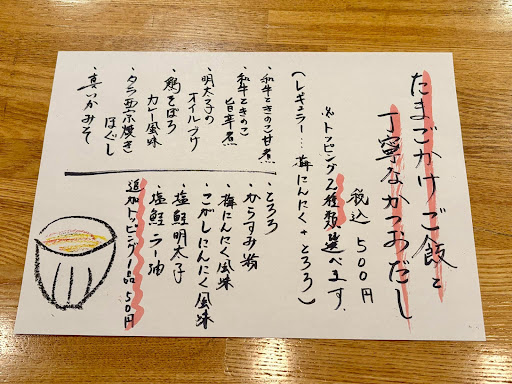 たまごかけご飯と
丁寧なかつおだし
税込 500円
※トッピング2種類選べます。
(レギュラー…梅にんにく+とろろ)
・和牛ときのこ甘煮
・和牛ときのこ
旨辛煮
・明太子の
オイルづけ
・鶏そぼろ
カレー風味
・タラ西京焼き
ほぐし
・真いかみそ
・とろろ
・からすみ粉
・梅にんにく風味
・こがしにんにく風味
・塩鮭明太子
・塩鮭ラー油
追加トッピング1品50円